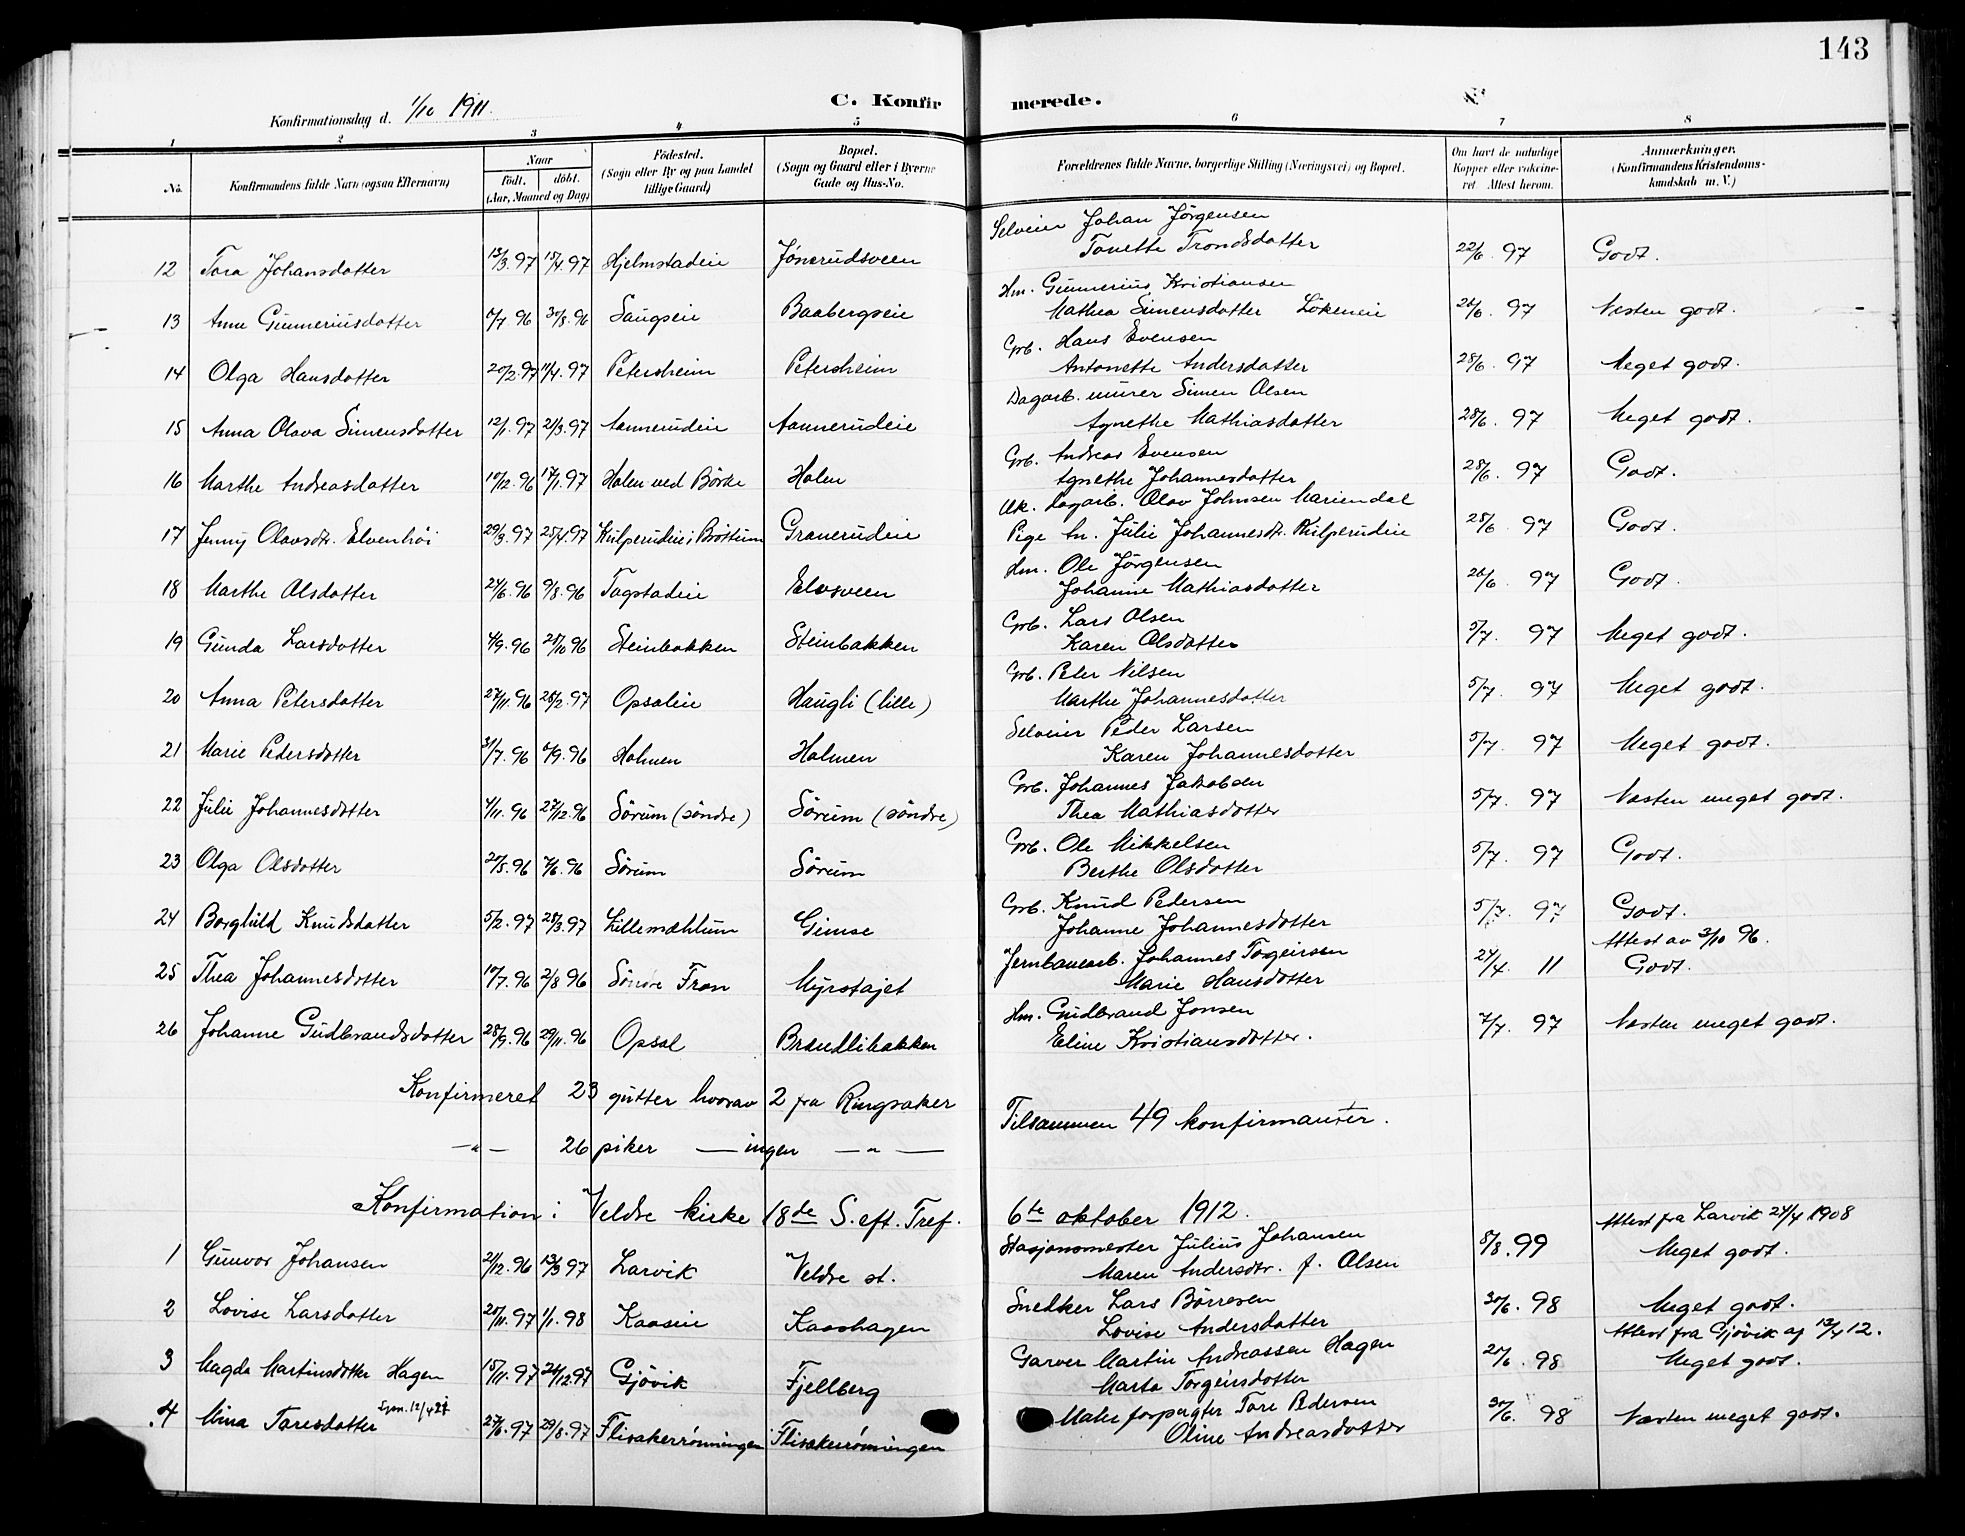 143
Konfirmationsdag d. 1/10 1911.
C. Konfirmerede.
1 2 3 4 5 6 7 8
No. Konfirmandens fulde Navn (ogsaa Efternavn) Naar født, døbt. (Aar, Maaned og Dag) Fødested. (Sogn eller By og paa Landet tillige Gaard) Bopæl. (Sogn og Gaard eller i Byerne Gade og Hus-No. Forældrenes fulde Navne, borgerlige Stilling (Næringsvei) og Bopæl. Om havt de naturlige Kopper eller vakcineret. Attest herom. Anmærkninger. (Konfirmandens Kristendomskundskab m. V.)
Selveier Johan Jörgensen
12 Tora Johansdatter 13/3.97 15/4.97 Hjelmstadeie Jönerudsveen Tonette Trondsdatter 22/6. 97 Godt.
Hm. Gunnerius Kristiansen
13 Anne Gunneriusdatter 6/7.96 30/8.96 Saugseie Baabergseie Mathea Simensdatter Lökeneie 26/6. 97 Næsten godt.
Grb. Hans Evensen
14 Olga Hansdatter 20/2.97 11/4.97 Petersheim Petersheim Antonette Andersdatter 28/6. 97 Meget godt.
Dagarb. murer Simen Olsen
15 Anna Olava Simensdatter 12/1.97 21/3.97 Aannerudeie Aannerudeie Agnethe Mathiasdatter 28/6. 97 Meget godt.
Grb. Andreas Evensen
16 Marthe Andreasdatter 10/12.96 17/1.97 Holen ved Börke Holen Agnethe Johannesdatter 28/6. 97 Godt.
Uk. Dagarb. Olav Johnsen Mariendal
17 Jenny Olavsdt. Elvenhöi 29/3.97 25/4.97 Kulperudeie i Bröttum Granerudeie Pige tn. Julie Johannesdt. Kulperudeie 28/6. 97 Godt.
Hm. Ole Jörgensen
18 Marthe Olsdatter 24/6.96 9/8.96 Tagstadeie Elvsveen Johanne Mathiasdatter 26/6. 97 Godt.
Grb. Lars Olsen
19 Gunda Larsdatter 4/9.96 25/10 96 Steinbakken Steinbakken Karen Olsdatter 5/7. 97 Meget godt.
Grb. Peter Nilsen
20 Anna Petersdatter 27/11.96 28/2.97 Opsaleie Haugli (lille) Marthe Johannesdatter 5/7. 97 Meget godt.
Selveier Peder Larsen
21 Marie Pedersdatter 31/7.96 6/9.96 Holmen Holmen Karen Johannesdatter 5/7. 97 Meget godt.
Grb. Johannes Jakobsen
22 Julie Johannesdatter 4/11.96 27/12.96 Sörum (söndre) Sörum (söndre) Thea Mathiasdatter 5/7. 97 Næsten meget godt.
Grb. Ole Mikkelsen
23 Olga Olsdatter 27/5.96 7/6.96 Sörum Sörum Berthe Olsdatter 5/7. 97 Godt.
Grb. Knud Pedersen
24 Borghild Knudsdatter 5/2.97 28/3.97 Lillemæhlum Gimse Johanne Johannesdatter 5/7. 97 Godt.
Jernbanearb. Johannes Torgeirsen Attest av 2/10 96.
25 Thea Johannesdotter 17/7.96 2/8 96 Söndre Fron Myrstajet Marie Hansdotter 24/4. 11 Godt.
Hm. Gudbrand Jonsen
26 Johanne Gudbrandsdotter 28/9.96 29/11.96 Opsal Brændlibakken Eline Kristiansdotter. 7/7. 97 Næsten meget godt.
Konfirmeret 23 gutter hvorav 2 fra Ringsaker
Tilsammen 49 konfirmanter.
—"— 26 piker — ingen —"—
Konfirmation i Veldre kirke 18de S. eft. Tref. 6te oktober 1912.
Attest fra Larvik 24/4 1908
Stasjonsmester Julius Johansen
1 Gunvor Johansen 21/12.96 13/3 97 Larvik Veldre st. Maren Andersdtr. f. Olsen 8/8. 99 Meget godt.
Snedker Lars Börresen
2 Lovise Larsdatter 20/11.97 1/1.98 Kaaseie Kaashagen Lovise Andersdatter 30/6. 98 Meget godt.
Garver Martin Andreassen Hagen Attest fra Gjövik af 13/4 12.
3 Magda Martinsdotter Hagen 15/11.97 26/12.97 Gjövik Fjellberg Marta Torgeirsdotter 20/6. 98 Meget godt.
4 Mina Toresdatter 27/6.97 29/8.97 Flisakerrönningen Flisakerrönningen Tore Pedersen 30/6. 98 Næsten meget godt.
Oline Andreasdotter